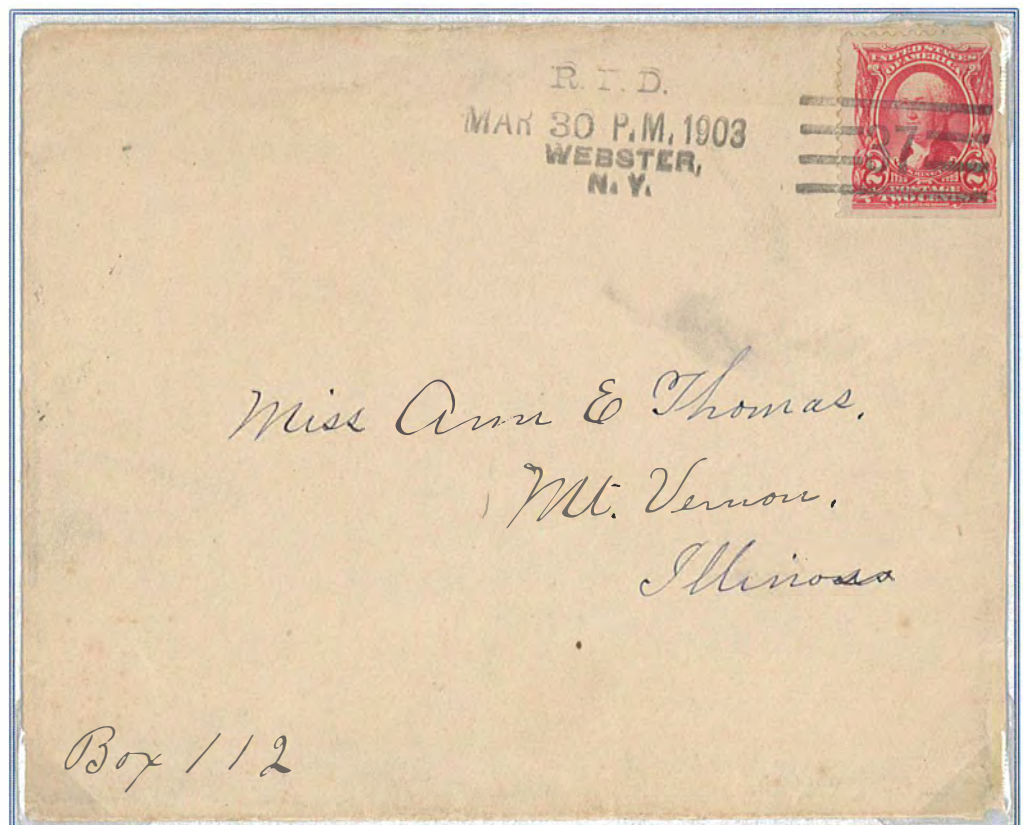 R. F. D.
MAR 30 P.M. 1903
WEBSTER,
N. Y.
UNITED STATES
OF AMERICA
37
2 2
POSTAGE
TWO CENTS
Miss Ann E Thomas,
Mt. Vernon,
Illinois
Box 112